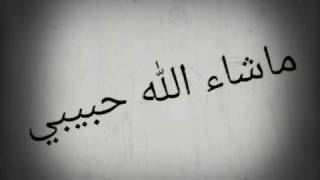 ماشاء الله حبيبي